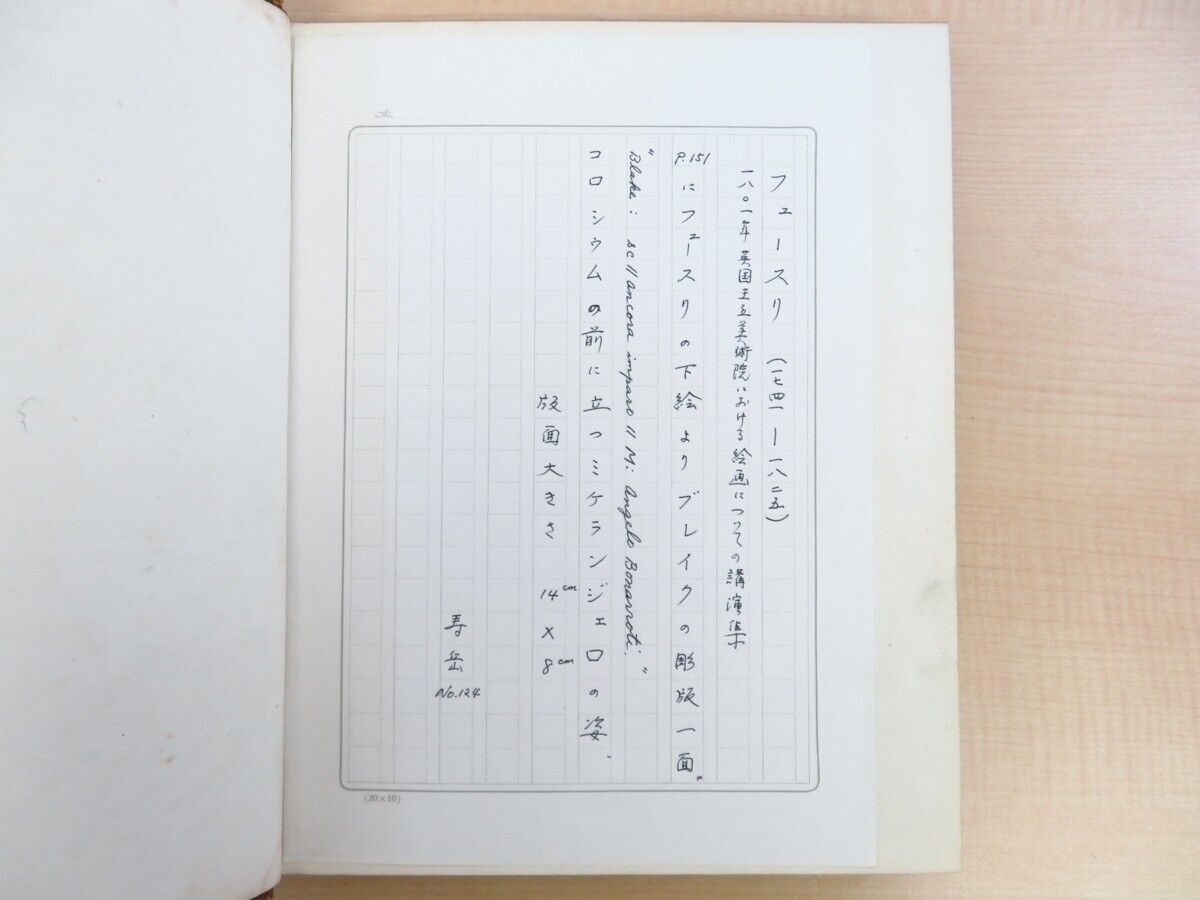 No.
フュースリ (一七四一ー一八二五)
一八〇一年英国王立美術院における絵画についての講演集
P.151にフュースリの下絵よりブレイクの彫版一面。
"Blake: sc // ancora imparo // M: Angelo Bonarroti."
コロシウムの前に立つミケランジェロの姿、
版面大きさ 14cm×8cm
寿岳 No.124
(20×10)